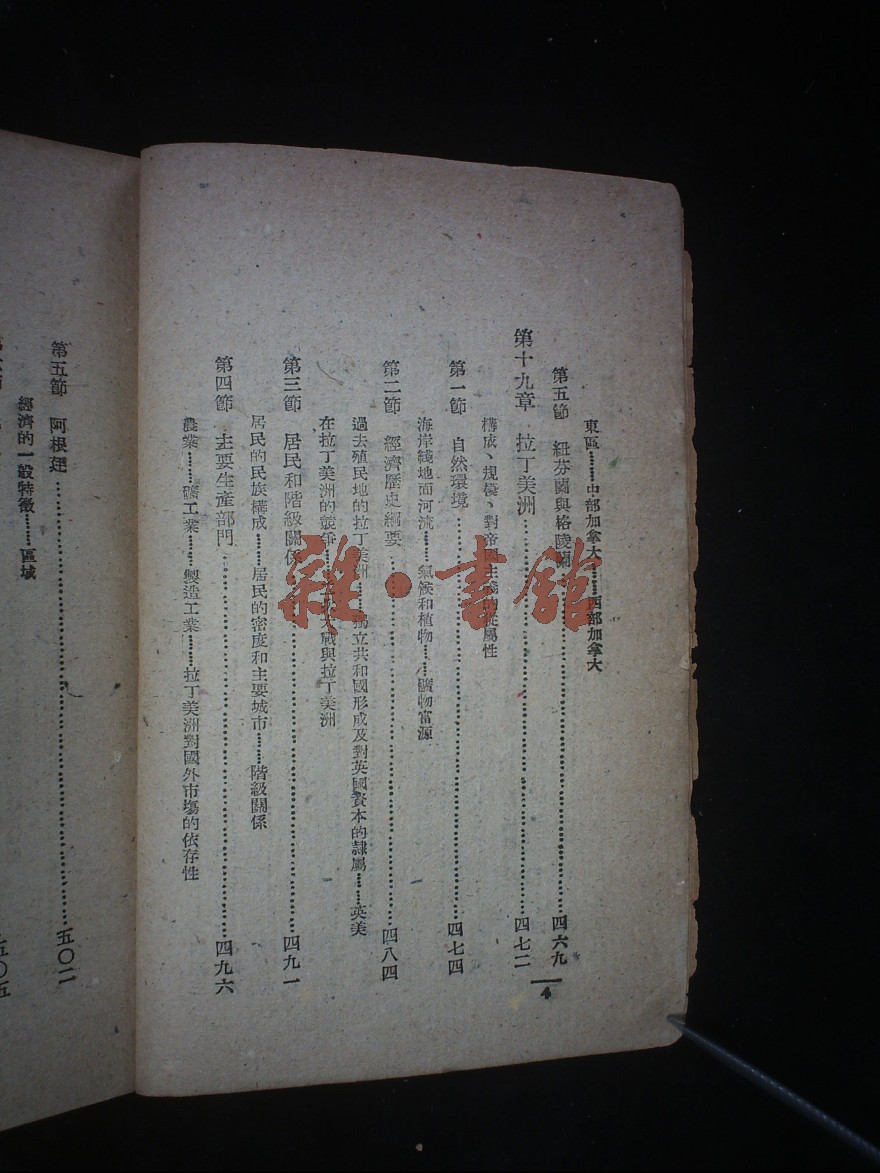 東區………中部加拿大………西部加拿大
第五節 紐芬蘭與格陵蘭………四六九
第十九章 拉丁美洲………四七二
構成、規模、對帝國主義的從屬性
第一節 自然環境………四七四
海岸綫地面河流………氣候和植物………礦物富源
第二節 經濟歷史綱要………四八四
過去殖民地的拉丁美洲………獨立共和國形成及對英國資本的隸屬………英美
在拉丁美洲的競爭………大戰與拉丁美洲
第三節 居民和階級關係………四九一
居民的民族構成………居民的密度和主要城市………階級關係
第四節 主要生產部門………四九六
農業………礦工業………製造工業………拉丁美洲對國外市塲的依存性
4
第五節 阿根廷………五〇二
經濟的一般特徵………區域
五〇五
雜·書館